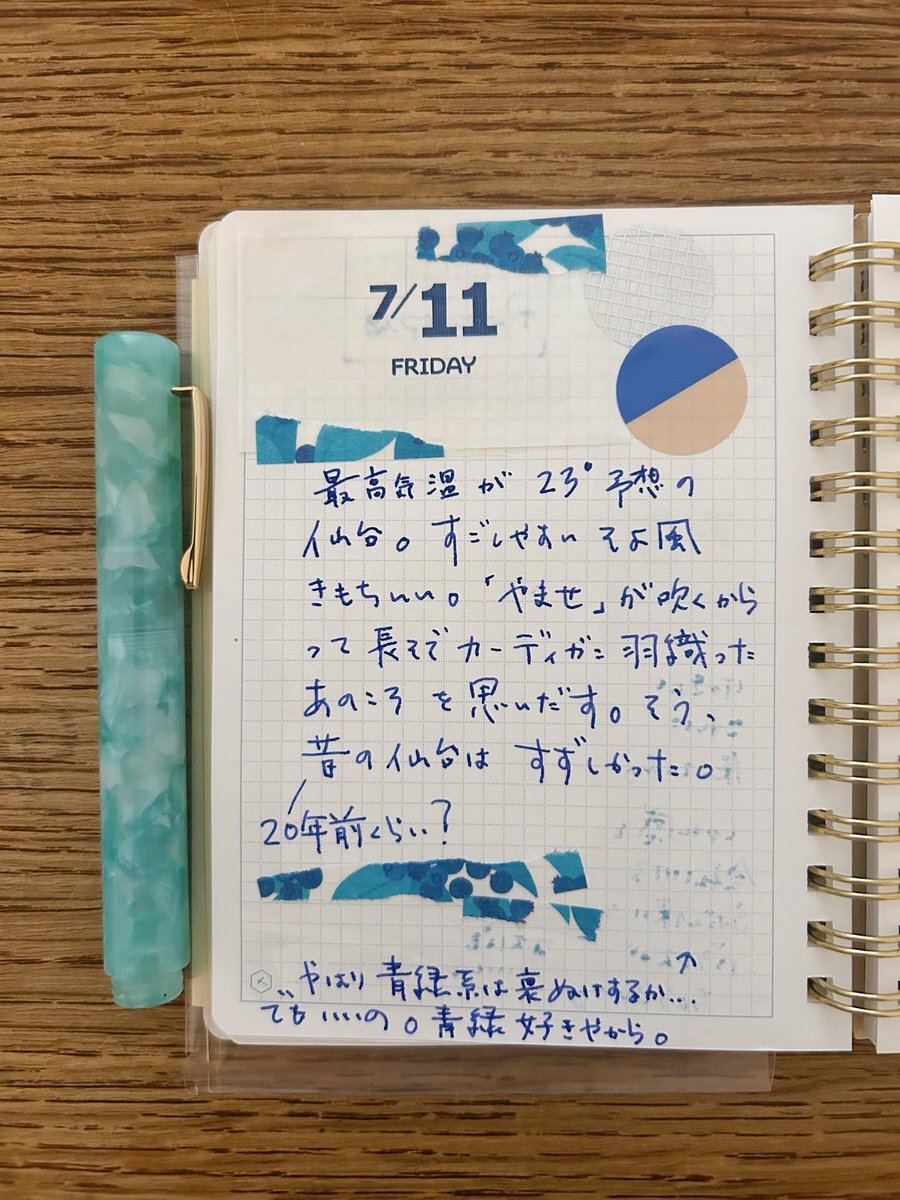 7/11
FRIDAY
最高気温が23°予想の
仙台。すごしやすい そよ風
きもちいい。「やませ」が吹くから
って長そでカーディガン羽織った
あのころを思いだす。そう、
昔の仙台はすずしかった。
20年前くらい?
やはり青緑系は裏ぬけするか…
でもいいの。青緑好きやから。